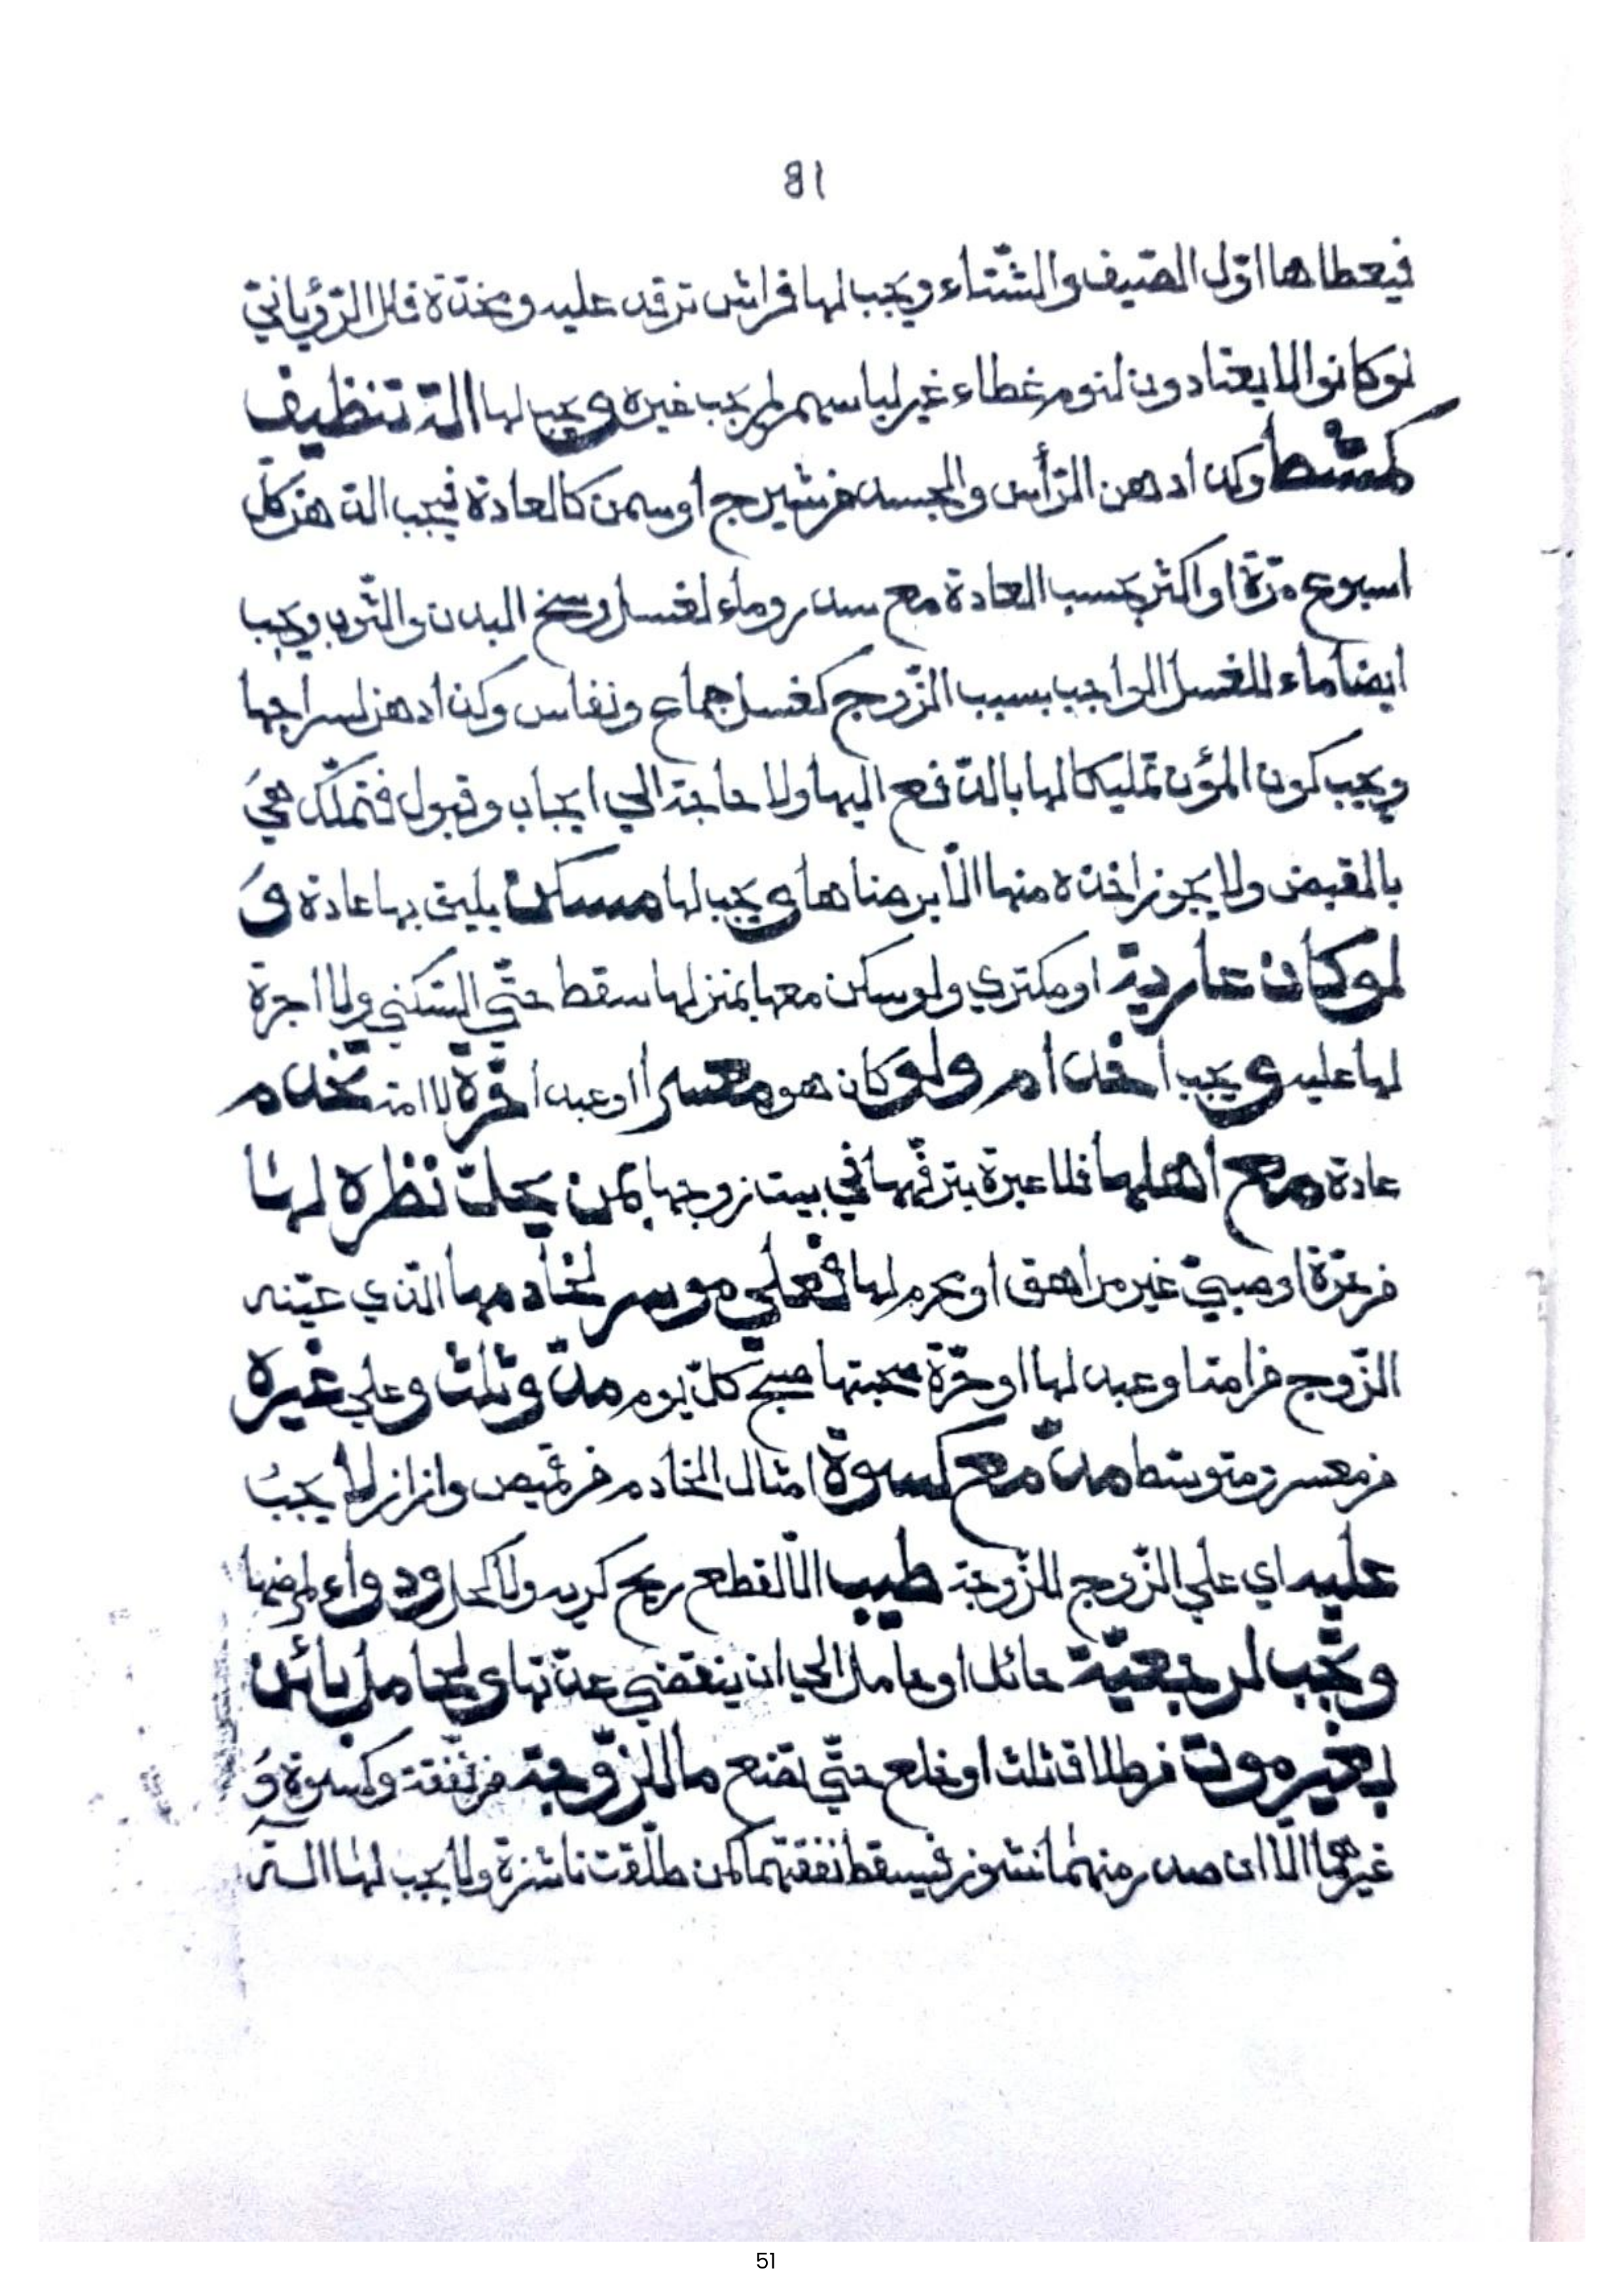 81
فيعطاها اوّل الصّيف والشّتاء ويجب لها فراش ترقد عليه ومخدّة قال الرّؤيانيّ
لو كانوا لا يعتادون لنوم غطاء غير لباسهم لم يجب غيره و يجب لها الة تنظيف
كمشط وكذا دهن الرّأس والجسد من شيرج او سمن كالعادة فيجب الدّهن كلّ
اسبوع مرّة او اكثر بحسب العادة مع سدر وماء لغسل وسخ البدن والثّوب ويجب
ايضا ماء للغسل الواجب بسبب الزّوج كغسل جماع ونفاس وكذا دهن لسراجها
ويجب كون المؤن تمليكا لها بالدّفع اليها ولا حاجة الي ايجاب وقبول فتملّك هي
بالقبض ولا يجوز اخذه منها الّا برضاها و يجب لها مسكن يليق بها عادة و
لو كان عارية او مكتري ولو سكن معها بمنزلها سقط حتّي السّكني ولا اجرة
لها عليه و يجب اخدام ولو كان هو معسرا او عبدا حرّة لا امة تخدم
عادة مع اهلها فلا عبرة بترفّهها في بيت زوجها بمن يحلّ نظره لها
من حرّة او صبيّ غير مراهق او محرم لها فعلي موسر لخادمها الّذي عيّنه
الزّوج من امتها وعبد لها او حرّة صحبتها صبح كلّ يوم مدّ وثلث وعلي غيره
من معسر ومتوسّط مدّ مع كسوة امثال الخادم من قميص وازار لا يجب
عليه اي علي الزّوج للزّوجة طيب الّا لقطع ريح كريه ولا كحل ودواء لمرضها
وتجب لرجعيّة حائل او حامل الي ان ينقضي عدّتها و لحامل بائن
بغير موت من طلاق ثلث او خلع حتّي تضع ما للزّوجة من نفقة وكسوة و
غيرهما الّا ان صدر منهما نشوز فيسقط نفقتهما كمن طلّقت ناشزة ولا يجب لهما الة
51